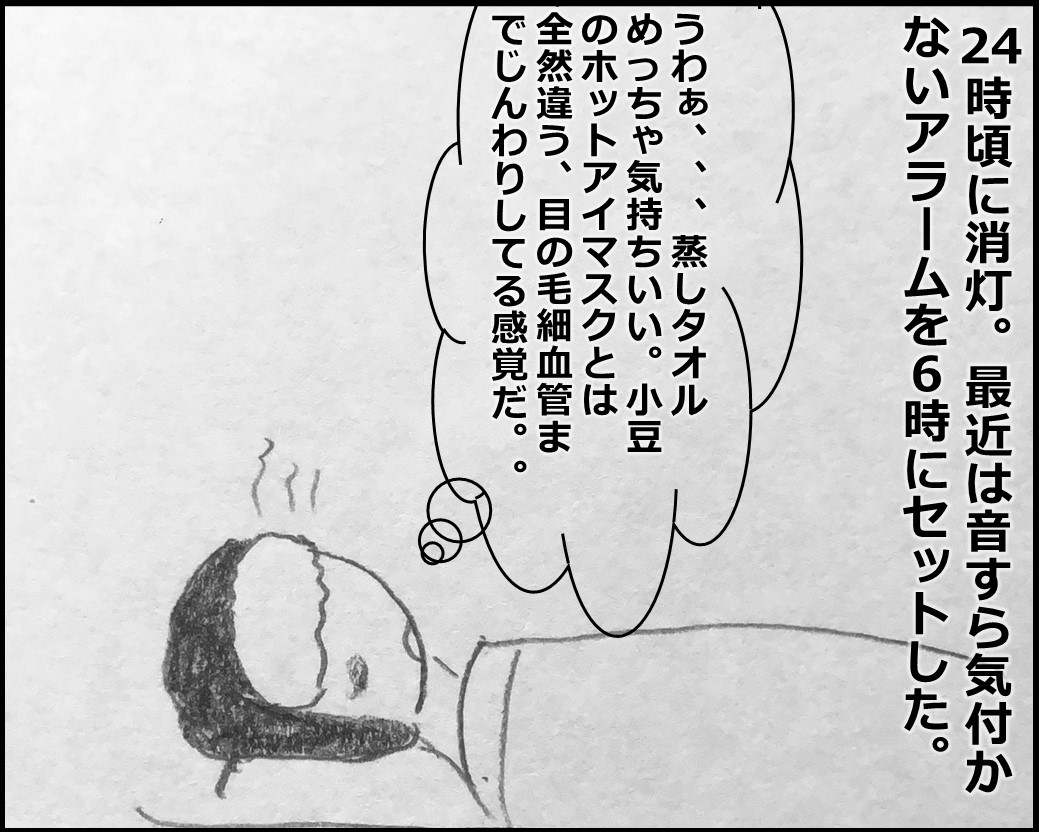 24時頃に消灯。最近は音すら気付か
ないアラームを6時にセットした。
うわぁ、、、蒸しタオル
めっちゃ気持ちいい。小豆
のホットアイマスクとは
全然違う、目の毛細血管ま
でじんわりしてる感覚だ。。